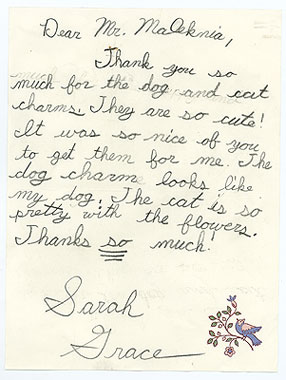 Dear Mr. MacEknia,
Thank you so
much for the dog and cat
charms. They are so cute!
It was so nice of you
to get them for me. The
dog charm looks like
my dog. The cat is so
pretty with the flowers.
Thanks so much!
Sarah
Grace